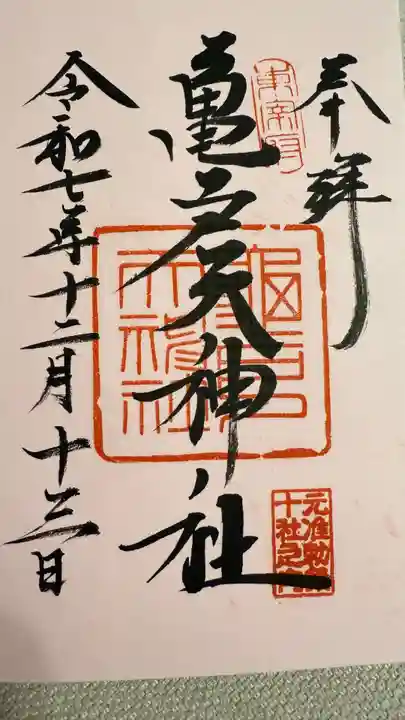 奉拝
亀戸天神社
令和七年十二月十三日
亀戸
天神社
元准勅祭
十社之内